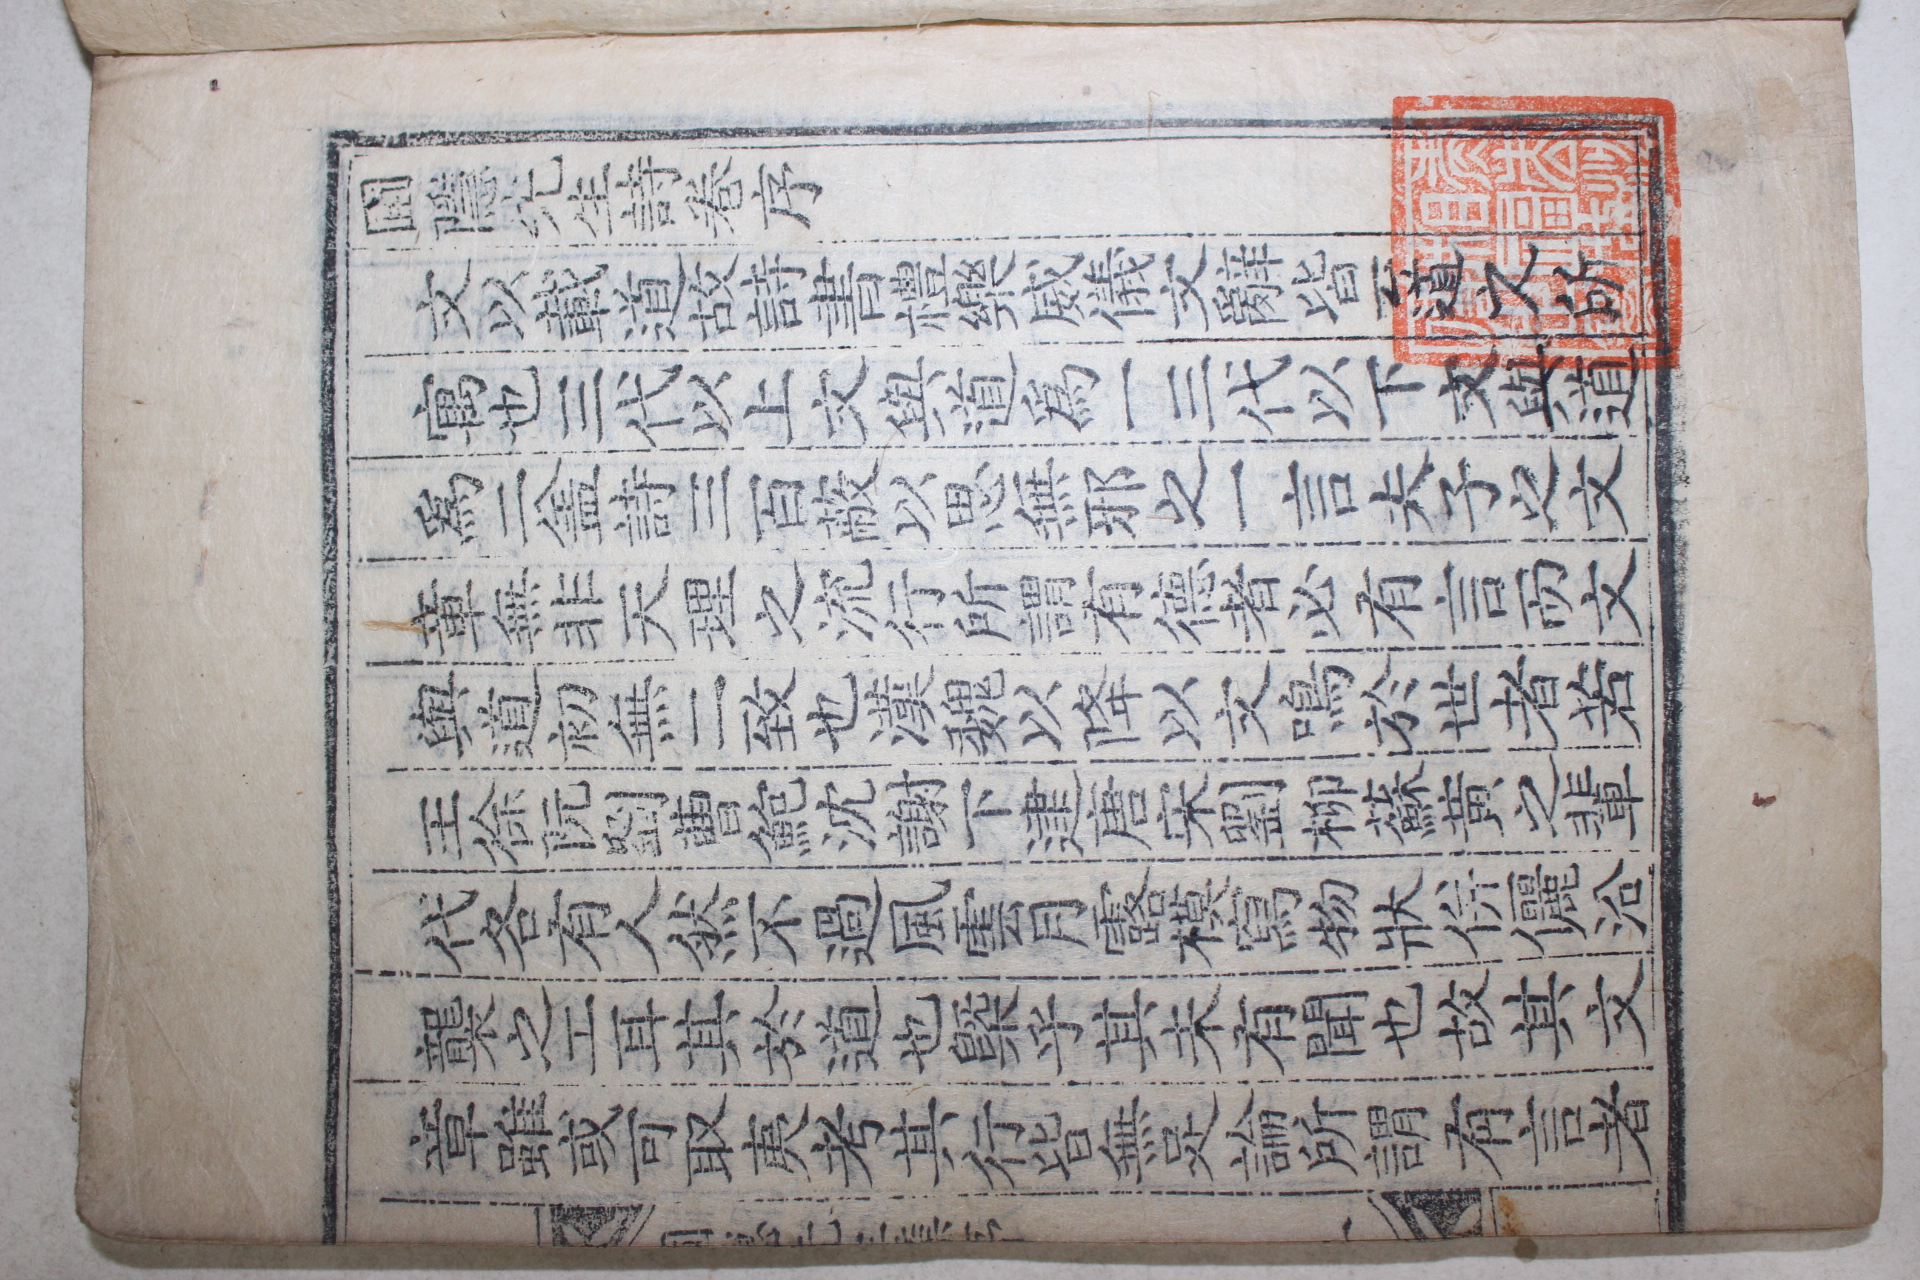 圃隱先生詩卷序
文以載道故詩書禮樂威儀文辭皆至道之所
寓也三代以上文與道爲一三代以下文與道
爲二盖詩三百蔽以思無邪之一言夫子之文
章無非天理之流行所謂有德者必有言而文
與道初無二致也漢魏以降以文鳴於世者若
王徐阮劉曹鮑沈謝下逮唐宋劉柳蘇黃之輩
代各有人然不過風雲月露模寫物狀衒儷沿
襲之工耳其於道也槩乎其未有聞也故其文
章雖或可取夷考其行皆無足論所謂有言者